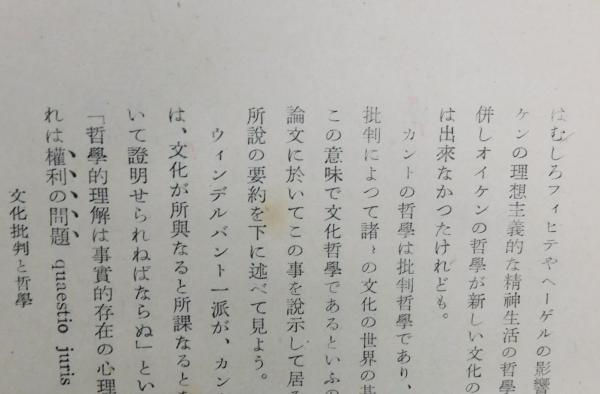 はむしろフィヒテやヘーゲルの影響
ケンの理想主義的な精神生活の哲學
併しオイケンの哲學が新しい文化の
は出來なかつたけれども。
カントの哲學は批判哲學であり、
批判によつて諸〻の文化の世界の基
この意味で文化哲學であるといふの
論文に於いてこの事を說示して居る
所說の要約を下に述べて見よう。
ウィンデルバント一派が、カン
は、文化が所與なると所課なるとを
いて證明せられねばならぬ」とい
「哲學的理解は事實的存在の心理
れは權利の問題 quaestio juris
文化批判と哲學